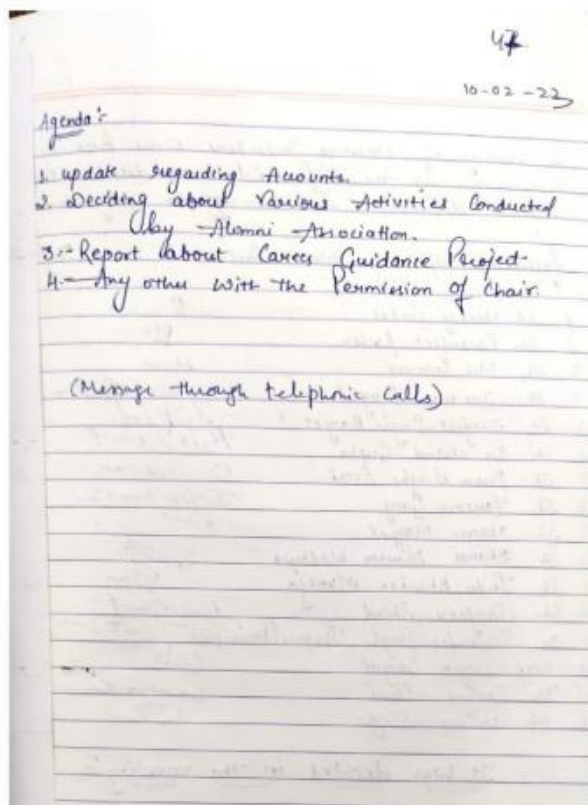 47
10-02-22
Agenda:
1. update regarding Accounts.
2. Deciding about Various Activities Conducted
by Alumni Association.
3.- Report about Career Guidance Project.
4.- Any other with the Permission of Chair.
(Message through telephonic calls)